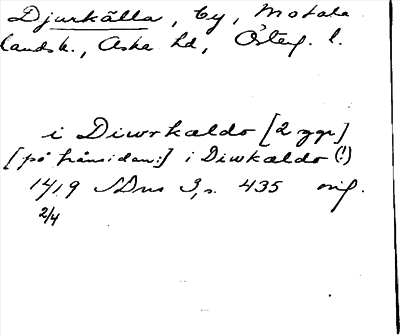 Djurkälla, by, Motala
landsk., Aska hd, Österg. l.
i Diwrkældo [2 ggr]
[på frånsidan:] i Diwkældo (!)
1419 SDns 3, s. 435 orig.
2/4